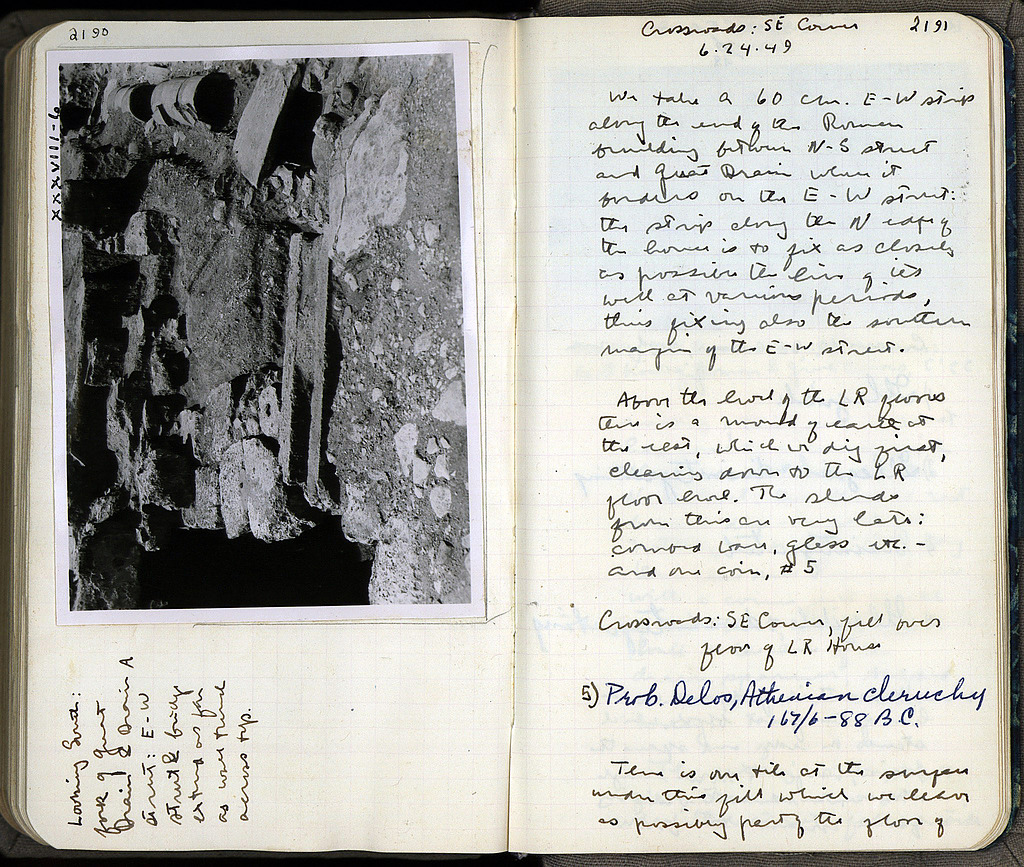 2190
XXXVIII-6
Looking South:
fork of Great
Drain & Drain A
at rt.: E-W
street bridge
extend as far
as wall
across top.
Crossroads: SE Corner
2191
6.24.49
We take a 60 cm. E-W strip
along the end of the Roman
building between N-S street
and Great Drain where it
borders on the E-W street:
the strip along the N edge of
the house is to fix as closely
as possible the line of its
wall at various periods,
thus fixing also the southern
margin of the E-W street.
Above the level of the LR floors
there is a mound of earth at
the east, which we dig first,
clearing down to the LR
floor level. The sherds
from this are very late:
combed ware, glass etc. -
and one coin, #5
Crossroads: SE Corner, fill over
floor of LR House
5) Prob. Delos, Athenian cleruchy
167/6-88 B.C.
There is one tile at the surface
under this fill which we leave
as possibly part of the floor of